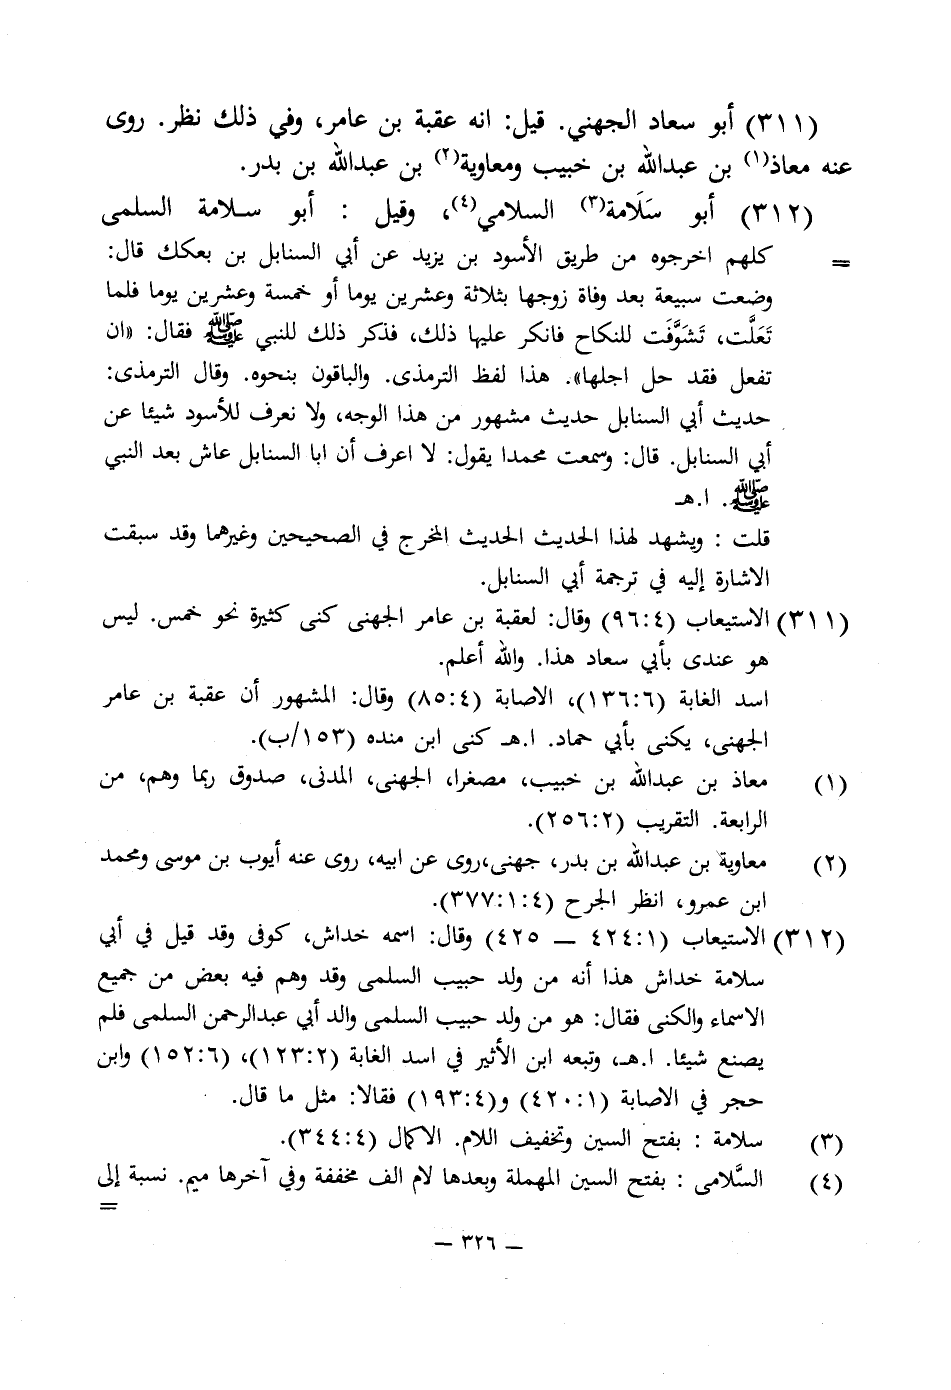 (٣١١) أبو سعاد الجهني. قيل: انه عقبة بن عامر، وفي ذلك نظر. روى
عنه معاذ(١) بن عبدالله بن خبيب ومعاوية(٢) بن عبدالله بن بدر.
(٣١٢) أبو سَلَامة(٣) السلامي(٤)، وقيل : أبو سلامة السلمى
= كلهم اخرجوه من طريق الأسود بن يزيد عن أبي السنابل بن بعكك قال:
وضعت سبيعة بعد وفاة زوجها بثلاثة وعشرين يوما أو خمسة وعشرين يوما فلما
تَعَلَّت، تَشَوَّفَت للنكاح فانكر عليها ذلك، فذكر ذلك للنبي ﷺ فقال: «ان
تفعل فقد حل اجلها». هذا لفظ الترمذى. والباقون بنحوه. وقال الترمذى:
حديث أبي السنابل حديث مشهور من هذا الوجه، ولا نعرف للأسود شيئا عن
أبي السنابل. قال: وسمعت محمدا يقول: لا اعرف أن ابا السنابل عاش بعد النبي
ﷺ. ا.هـ
قلت : ويشهد لهذا الحديث الحديث المخرج في الصحيحين وغيرهما وقد سبقت
الاشارة إليه في ترجمة أبي السنابل.
(٣١١) الاستيعاب (٩٦:٤) وقال: لعقبة بن عامر الجهنى كنى كثيرة نحو خمس. ليس
هو عندى بأبي سعاد هذا. والله أعلم.
اسد الغابة (١٣٦:٦)، الاصابة (٨٥:٤) وقال: المشهور أن عقبة بن عامر
الجهنى، يكنى بأبي حماد. ا.هـ كنى ابن منده (١٥٣/ب).
(١) معاذ بن عبدالله بن خبيب، مصغرا، الجهنى، المدنى، صدوق ربما وهم، من
الرابعة. التقريب (٢٥٦:٢).
(٢) معاوية بن عبدالله بن بدر، جهنى،روى عن ابيه، روى عنه أيوب بن موسى ومحمد
ابن عمرو، انظر الجرح (٣٧٧:١:٤).
(٣١٢) الاستيعاب (٤٢٤:١ — ٤٢٥) وقال: اسمه خداش، كوفى وقد قيل في أبي
سلامة خداش هذا أنه من ولد حبيب السلمى وقد وهم فيه بعض من جميع
الاسماء والكنى فقال: هو من ولد حبيب السلمى والد أبي عبدالرحمن السلمى فلم
يصنع شيئا. ا.هـ، وتبعه ابن الأثير في اسد الغابة (١٢٣:٢)، (١٥٢:٦) وابن
حجر في الاصابة (٤٢٠:١) و(١٩٣:٤) فقالا: مثل ما قال.
(٣) سلامة : بفتح السين وتخفيف اللام. الاكمال (٣٤٤:٤).
(٤) السَّلامى : بفتح السين المهملة وبعدها لام الف مخففة وفي آخرها ميم. نسبة إلى
=
— ٣٢٦ —